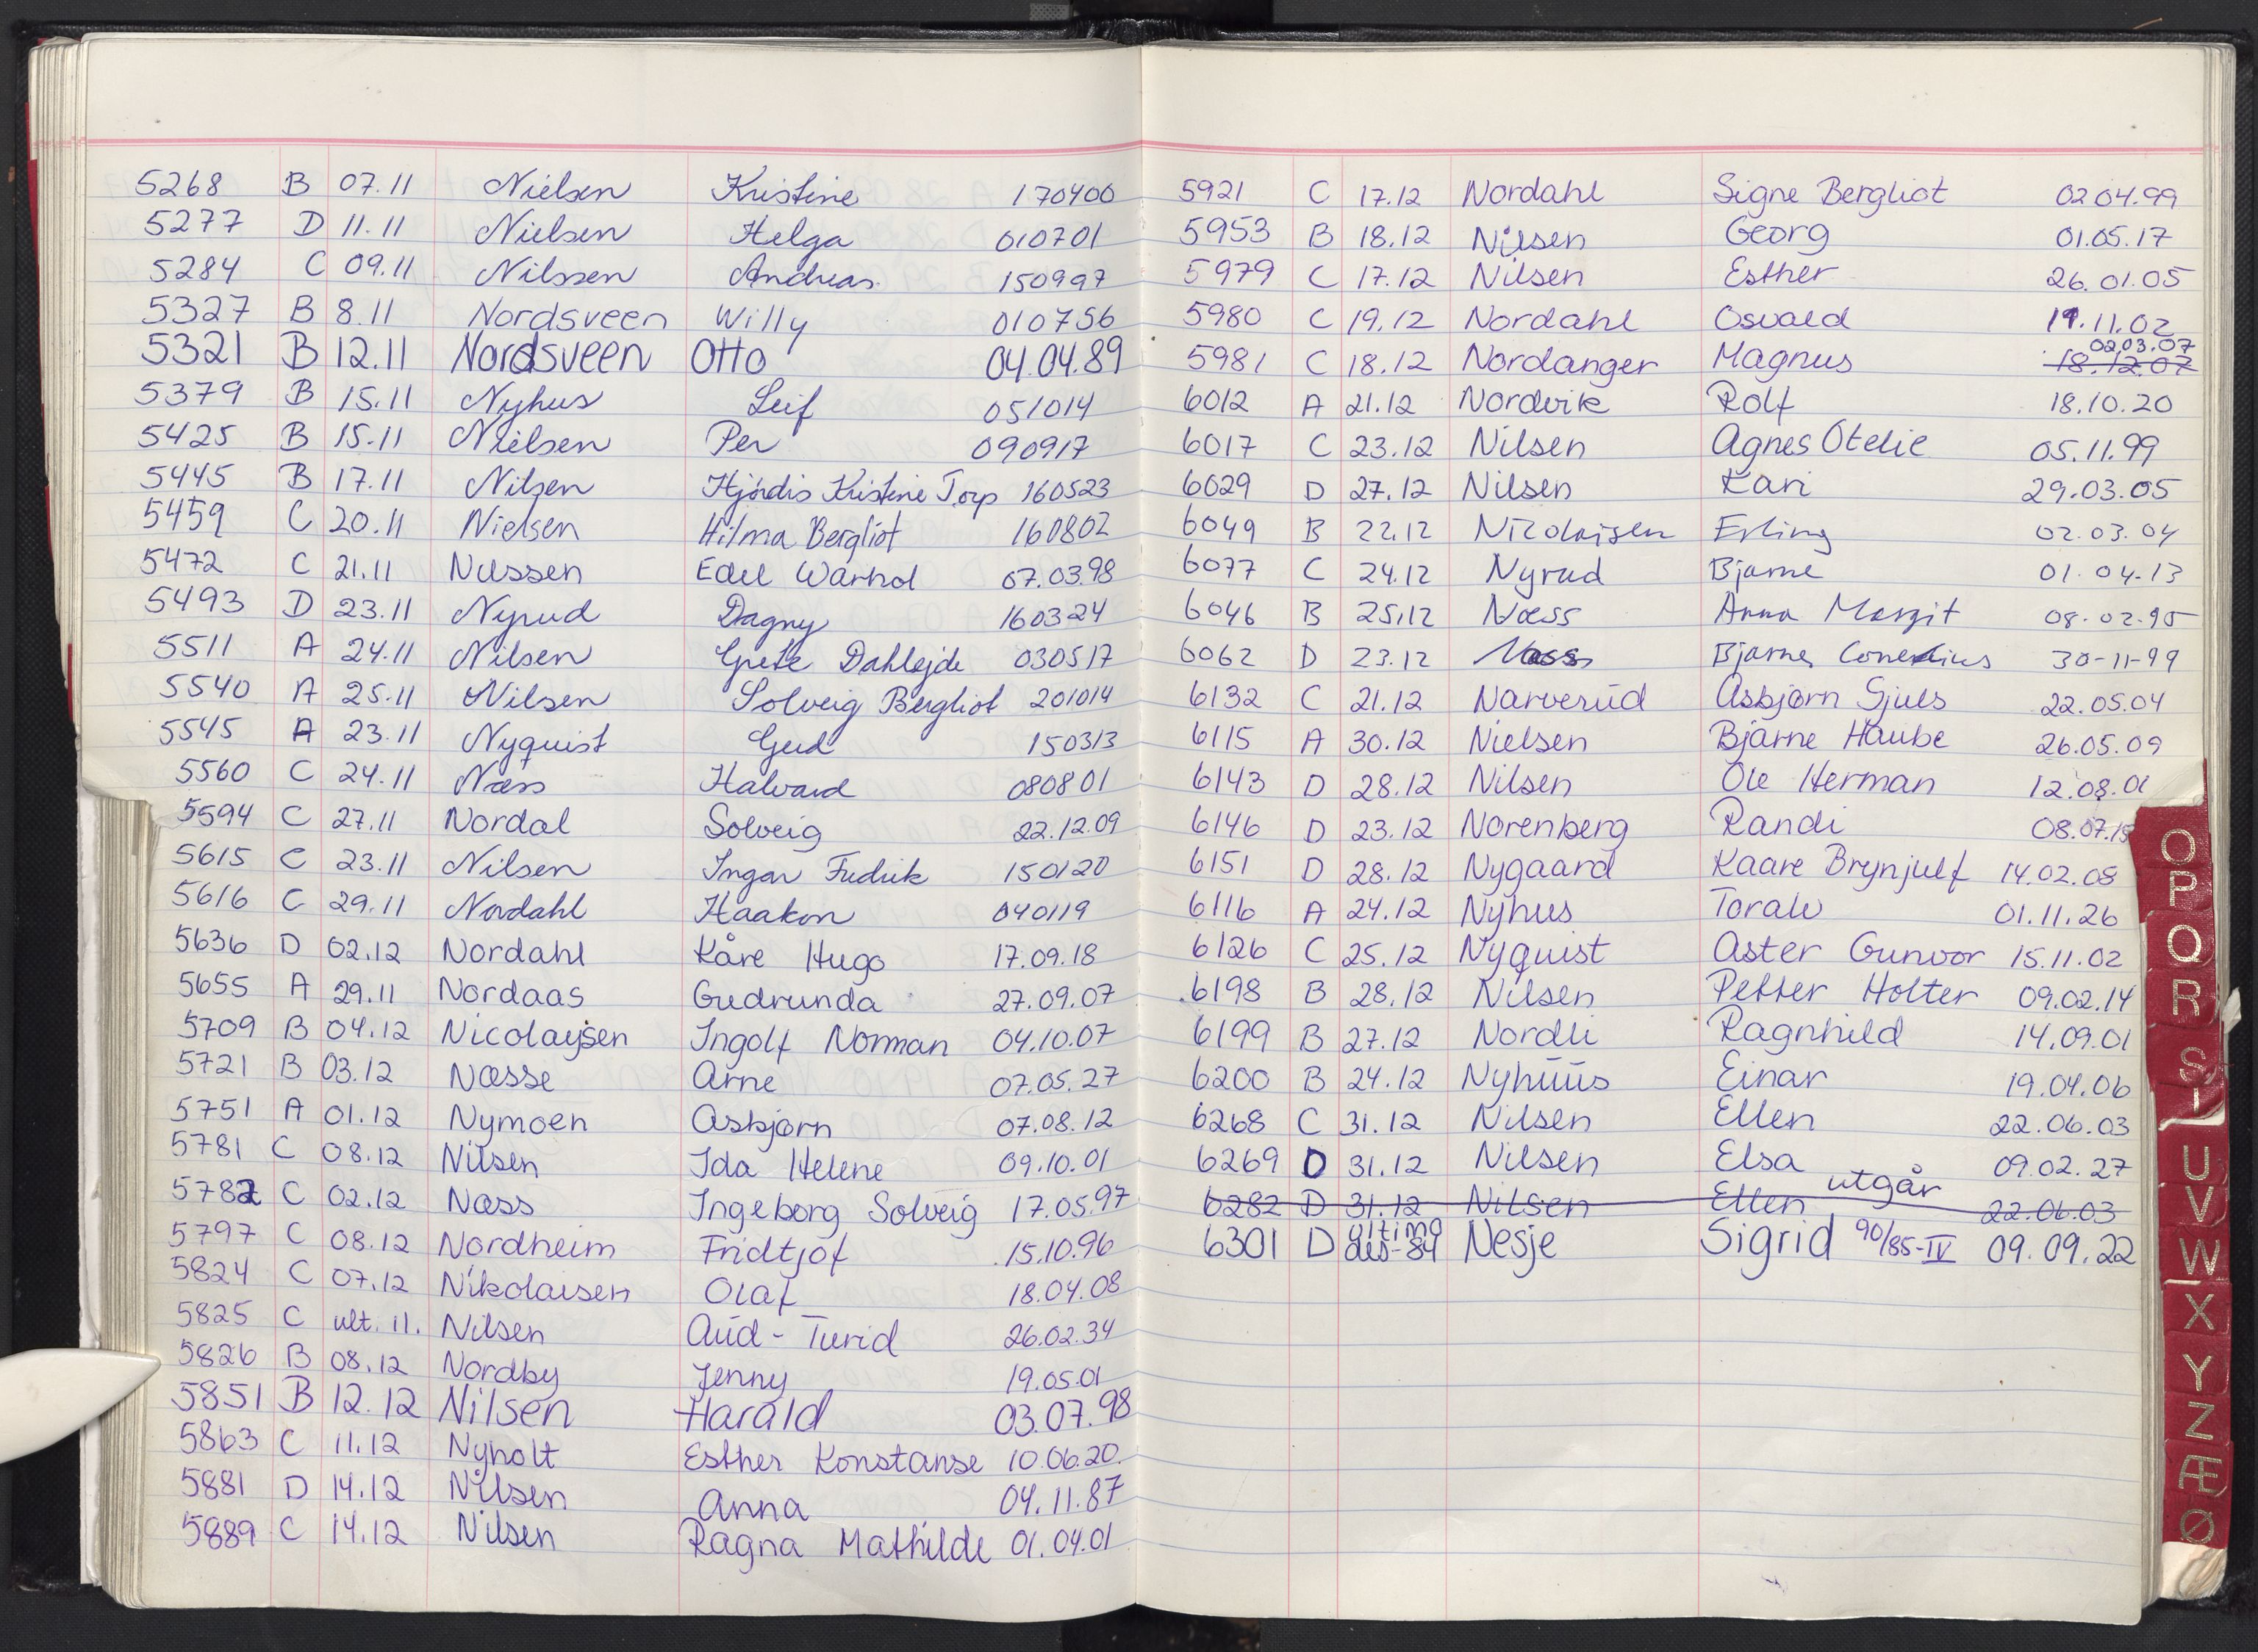 5268 B 07.11 Nielsen Kristine 170400
5277 D 11.11 Nielsen Helga 010701
5284 C 09.11 Nilssen Andreas 150997
5327 B 8.11 Nordsveen Willy 010756
5321 B 12.11 Nordsveen Otto 04.04.89
5379 B 15.11 Nyhus Leif 051014
5425 B 15.11 Nielsen Per 090917
5445 B 17.11 Nilsen Hjørdis Kristine Torp 160523
5459 C 20.11 Nielsen Hilma Bergliot 160802
5472 C 21.11 Nilssen Edel Warhol 07.03.98
5493 D 23.11 Nyrud Dagny 160324
5511 A 24.11 Nilsen Grete 030517
5540 A 25.11 Nilsen Solveig Bergliot 201014
5545 A 23.11 Nyquist Gerd 150313
5560 C 24.11 Næss Halvard 080801
5594 C 27.11 Nordal Solveig 22.12.09
5615 C 23.11 Nilsen Ingar Fredrik 150120
5616 C 29.11 Nordahl Haakon 040119
5636 D 02.12 Nordahl Kåre Hugo 17.09.18
5655 A 29.11 Nordaas Gudrunda 27.09.07
5709 B 04.12 Nicolaysen Ingolf Norman 04.10.07
5721 B 03.12 Næsse Arne 07.05.27
5751 A 01.12 Nymoen Asbjørn 07.08.12
5781 C 08.12 Nilsen Ida Helene 09.10.01
5782 C 02.12 Næss Ingeborg Solveig 17.05.97
5797 C 08.12 Nordheim Fridtjof 15.10.96
5824 C 07.12 Nikolaisen Olaf 18.04.08
5825 C ult. 11. Nilsen Aud-Turid 26.02.34
5826 B 08.12 Nordby Jenny 19.05.01
5851 B 12.12 Nilsen Harald 03.07.98
5863 C 11.12 Nyholt Esther Konstanse 10.06.20.
5881 D 14.12 Nilsen Anna 04.11.87
5889 C 14.12 Nilsen Ragna Mathilde 01.04.01
5921 C 17.12 Nordahl Signe Bergliot 02 04.99
5953 B 18.12 Nilsen Georg 01.05.17
5979 C 17.12 Nilsen Esther 26.01.05
5980 C 19.12 Nordahl Osvald 11.02
02.03.07
5981 C 18.12 Nordanger Magnus 18.12.07
6012 A 21.12 Nordvik Rolf 18.10.20
6017 C 23.12 Nilsen Agnes Otelie 05.11.99
6029 D 27.12 Nilsen Kari 29.03.05
6049 B 22.12 Nicolaisen Erling 02.03.04
6077 C 24.12 Nyrud Bjarne 01.04.13
6046 B 25.12 Næss Anna Margit 08.02.95
6062 D 23.12 Næss Bjarne Cornelius 30-11-99
6132 C 21.12 Narverud Asbjørn Gjuls 22.05.04
6115 A 30.12 Nielsen Bjarne Haube 26.05.09
6143 D 28.12 Nilsen Ole Herman 12.08.01
6146 D 23.12 Norenberg Randi 08.07.15
6151 D 28.12 Nygaard Kaare Brynjulf 14.02.08
6116 A 24.12 Nyhus Toralv 01.11.26
6126 C 25.12 Nyquist Aster Gunvor 15.11.02
6198 B 28.12 Nilsen Petter Holter 09.02.14
6199 B 27.12 Nordli Ragnhild 14.09.01
6200 B 24.12 Nyhuus Einar 19.04.06
6268 C 31.12 Nilsen Ellen 22.06.03
6269 D 31.12 Nilsen Elsa 09.02.27
6282 D 31.12 Nilsen Ellen utgår 22.06.03
6301 D ultimo des-84 Nesje Sigrid 90/85-IV 09.09.22
O
P
Q
R
S
T
U
V
W
X
Y
Z
Æ
Ø